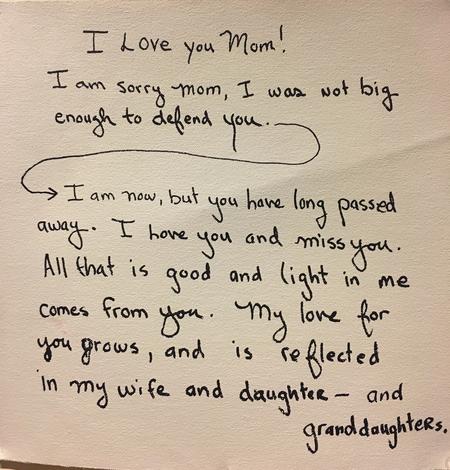 I Love you Mom!
I am sorry mom, I was not big
enough to defend you.
I am now, but you have long passed
away. I love you and miss you.
All that is good and light in me
comes from you. My love for
you grows, and is reflected
in my wife and daughter — and
granddaughters.